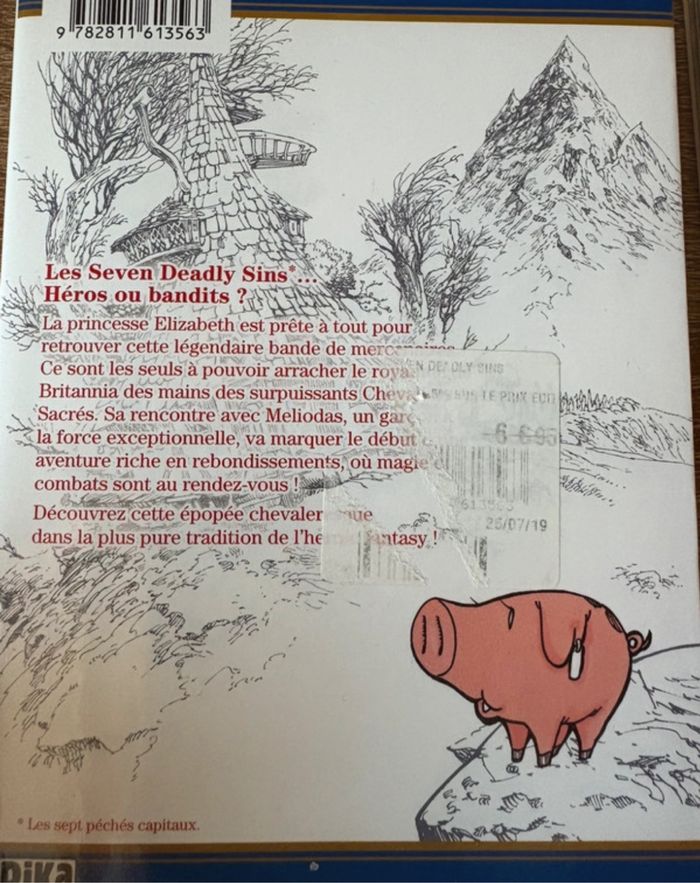 9 782811 613563
Les Seven Deadly Sins*...
Héros ou bandits ?
La princesse Elizabeth est prête à tout pour
retrouver cette légendaire bande de mercenaires.
Ce sont les seuls à pouvoir arracher le
Britannia des mains des surpuissants
Sacrés. Sa rencontre avec Meliodas, un
la force exceptionnelle, va marquer le début
aventure riche en rebondissements, où
combats sont au rendez-vous !
Découvrez cette épopée
dans la plus pure tradition de
EN DEADLY SINS
SUR LE PRIX EDIT
6 €95
613563
26/07/19
* Les sept péchés capitaux.
pika